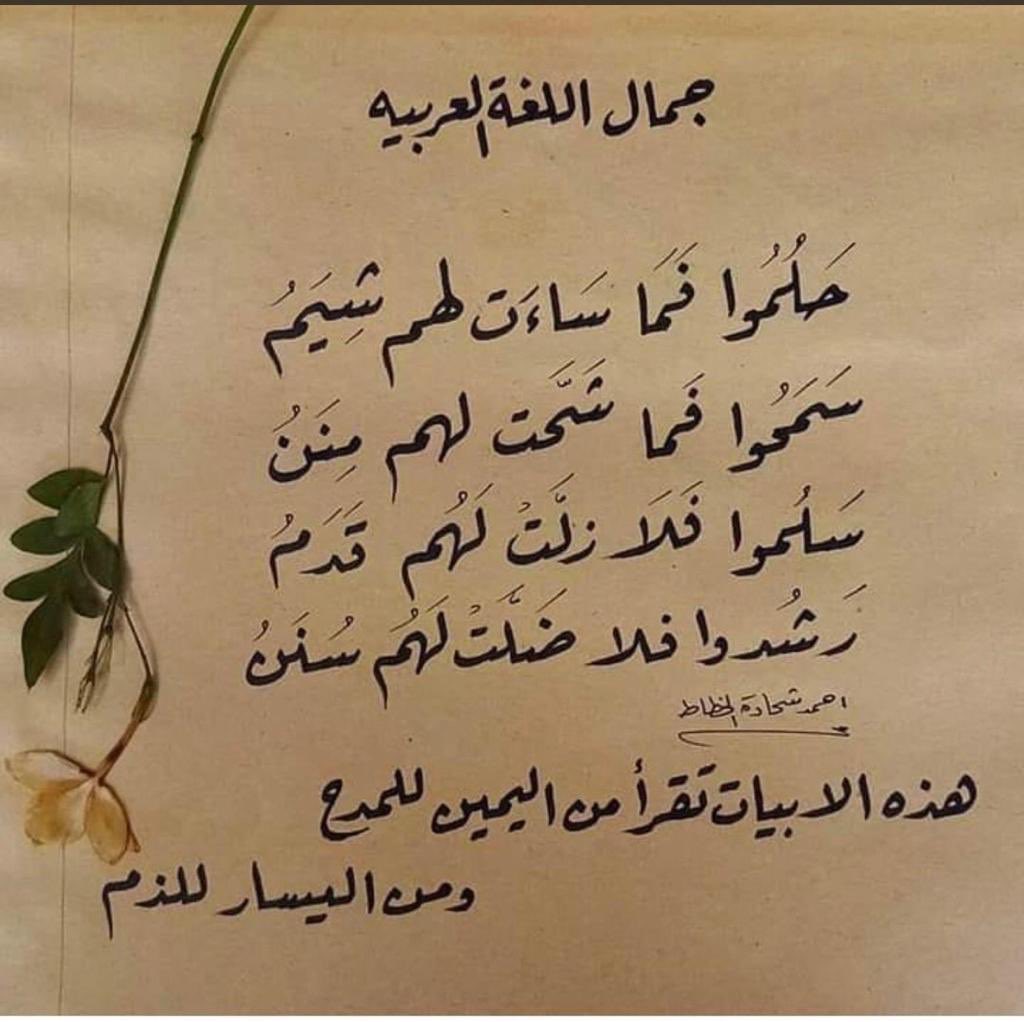 جمال اللغة العربيه
حَلُمُوا فَمَا سَاءَت لهم شِيَمُ
سَمَحُوا فَما شَحَّت لهم مِنَنُ
سَلُموا فَلَا زلَّتْ لَهُم قَدَمُ
رَشُدوا فلا ضَلَّتْ لَهُم سُنَنُ
احمد شحادة الخطاط
هذه الابيات تقرأ من اليمين للمدح
ومن اليسار للذم